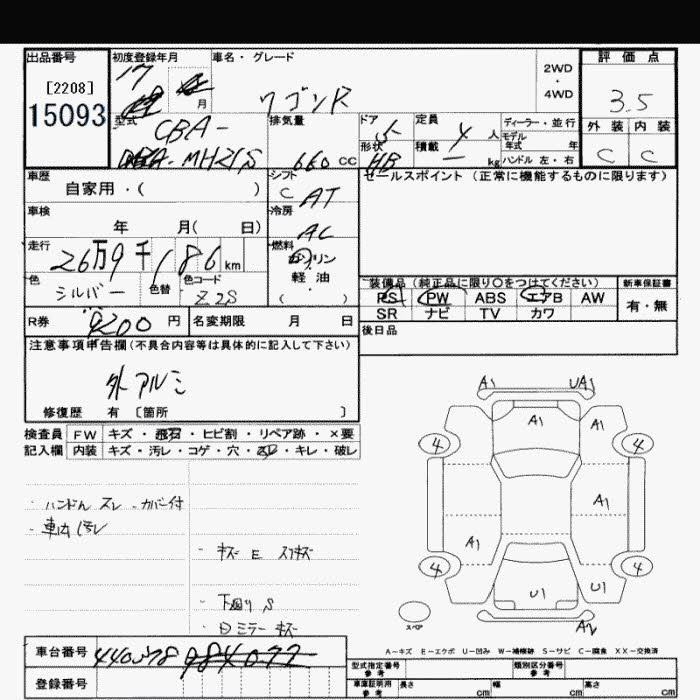 出品番号
[2208]
15093
初度登録年月
17
月
車名・グレード
ワゴンR
2WD
・
4WD
評価点
3.5
外装 内装
C C
型式
CBA-
MH21S
排気量
660 CC
ドア
5
形状
HB
定員
4 人
積載
— kg
ディーラー・並行
モデル
年式 年
ハンドル 左・右
車歴
自家用・( )
シフト
C AT
セールスポイント (正常に機能するものに限ります)
車検
年 月( 日)
冷房
AC
走行
26万9千186km
燃料
ガソリン
軽油
( )
色
シルバー
色替
色コード
Z2S
装備品 (純正品に限り○をつけてください)
PS PW ABS エアB AW
SR ナビ TV カワ
新車保証書
有・無
R券
9200 円
名変期限 月 日
後日品
注意事項申告欄 (不具合内容等は具体的に記入して下さい)
外アルミ
修復歴 有 [箇所 ]
検査員
記入欄
FW キズ・飛石・ヒビ割・リペア跡・×要
内装 キズ・汚レ・コゲ・穴・スレ・キレ・破レ
・ハンドル スレ・カバー付
・車内 汚レ
・キズ E スリキズ
・下回り S
・ミラー キズ
A1 UA1
A1 A1
4 4
A1
A1
4 4
U1 U1
A2
スペア
A-キズ E-エクボ U-凹み W-補修跡 S-サビ C-腐食 XX-交換済
車台番号
440578 984072
登録番号
型式指定番号
参考
類別区分番号
参考
車庫証明用
参考
長さ cm 幅 cm 高さ cm